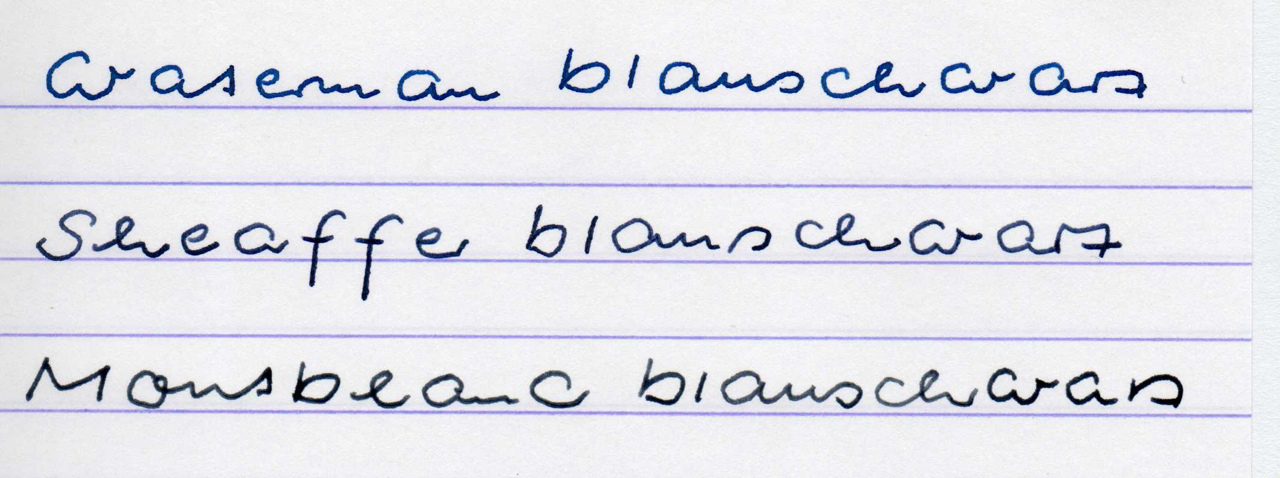 Waterman blauschwarz
Sheaffer blauschwarz
Montblanc blauschwarz